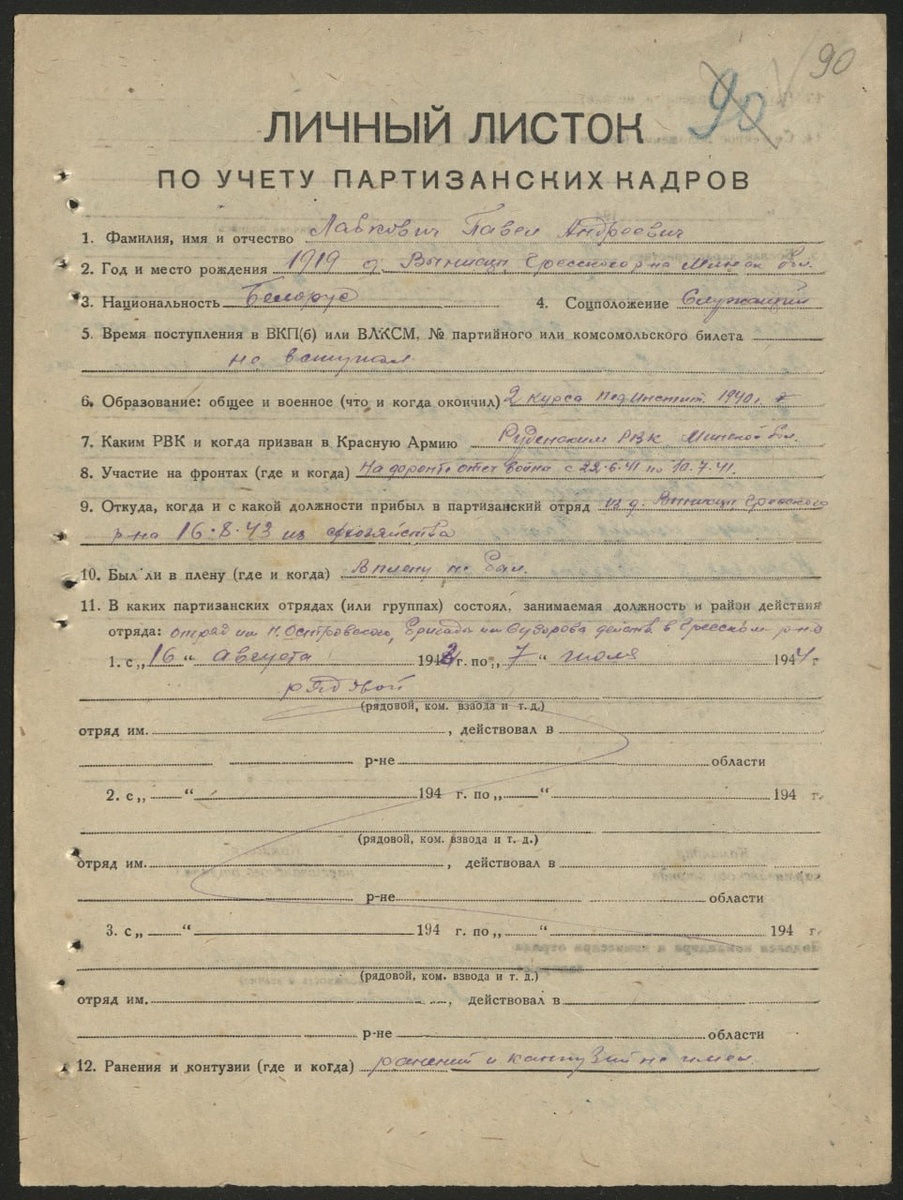 90
90
ЛИЧНЫЙ ЛИСТОК
ПО УЧЕТУ ПАРТИЗАНСКИХ КАДРОВ
1. Фамилия, имя и отчество Лавкович Павел Андреевич
2. Год и место рождения 1919 д. Гресского р-на Минск. бл.
3. Национальность Белорус 4. Соцположение Служащий
5. Время поступления в ВКП(б) или ВЛКСМ, № партийного или комсомольского билета
не вступал
6. Образование: общее и военное (что и когда окончил) 2 курса пединстит. 1940 г.
7. Каким РВК и когда призван в Красную Армию Руденским РВК Минской бл.
8. Участие на фронтах (где и когда) На фронте отеч война с 22.6.41 по 10.7.41.
9. Откуда, когда и с какой должности прибыл в партизанский отряд из д. Гресского
р-на 16.8.43 из хозяйства
10. Был ли в плену (где и когда) В плену не был.
11. В каких партизанских отрядах (или группах) состоял, занимаемая должность и район действия
отряда: отряд им Н. Островского, Бригады им Суворова действ. в Гресском р-но
1. с „16“ Августа 194 г. по „7“ июля 1944 г
рядовой
(рядовой, ком. взвода и т. д.)
отряд им. , действовал в
р-не области
2. с „ “ 194 г. по „ “ 194 г.
(рядовой, ком. взвода и т. д.)
отряд им. , действовал в
р-не области
3. с „ “ 194 г. по „ “ 194 г.
(рядовой, ком. взвода и т. д.)
отряд им. , действовал в
р-не области
12. Ранения и контузии (где и когда) ранений и кантузий не имел.